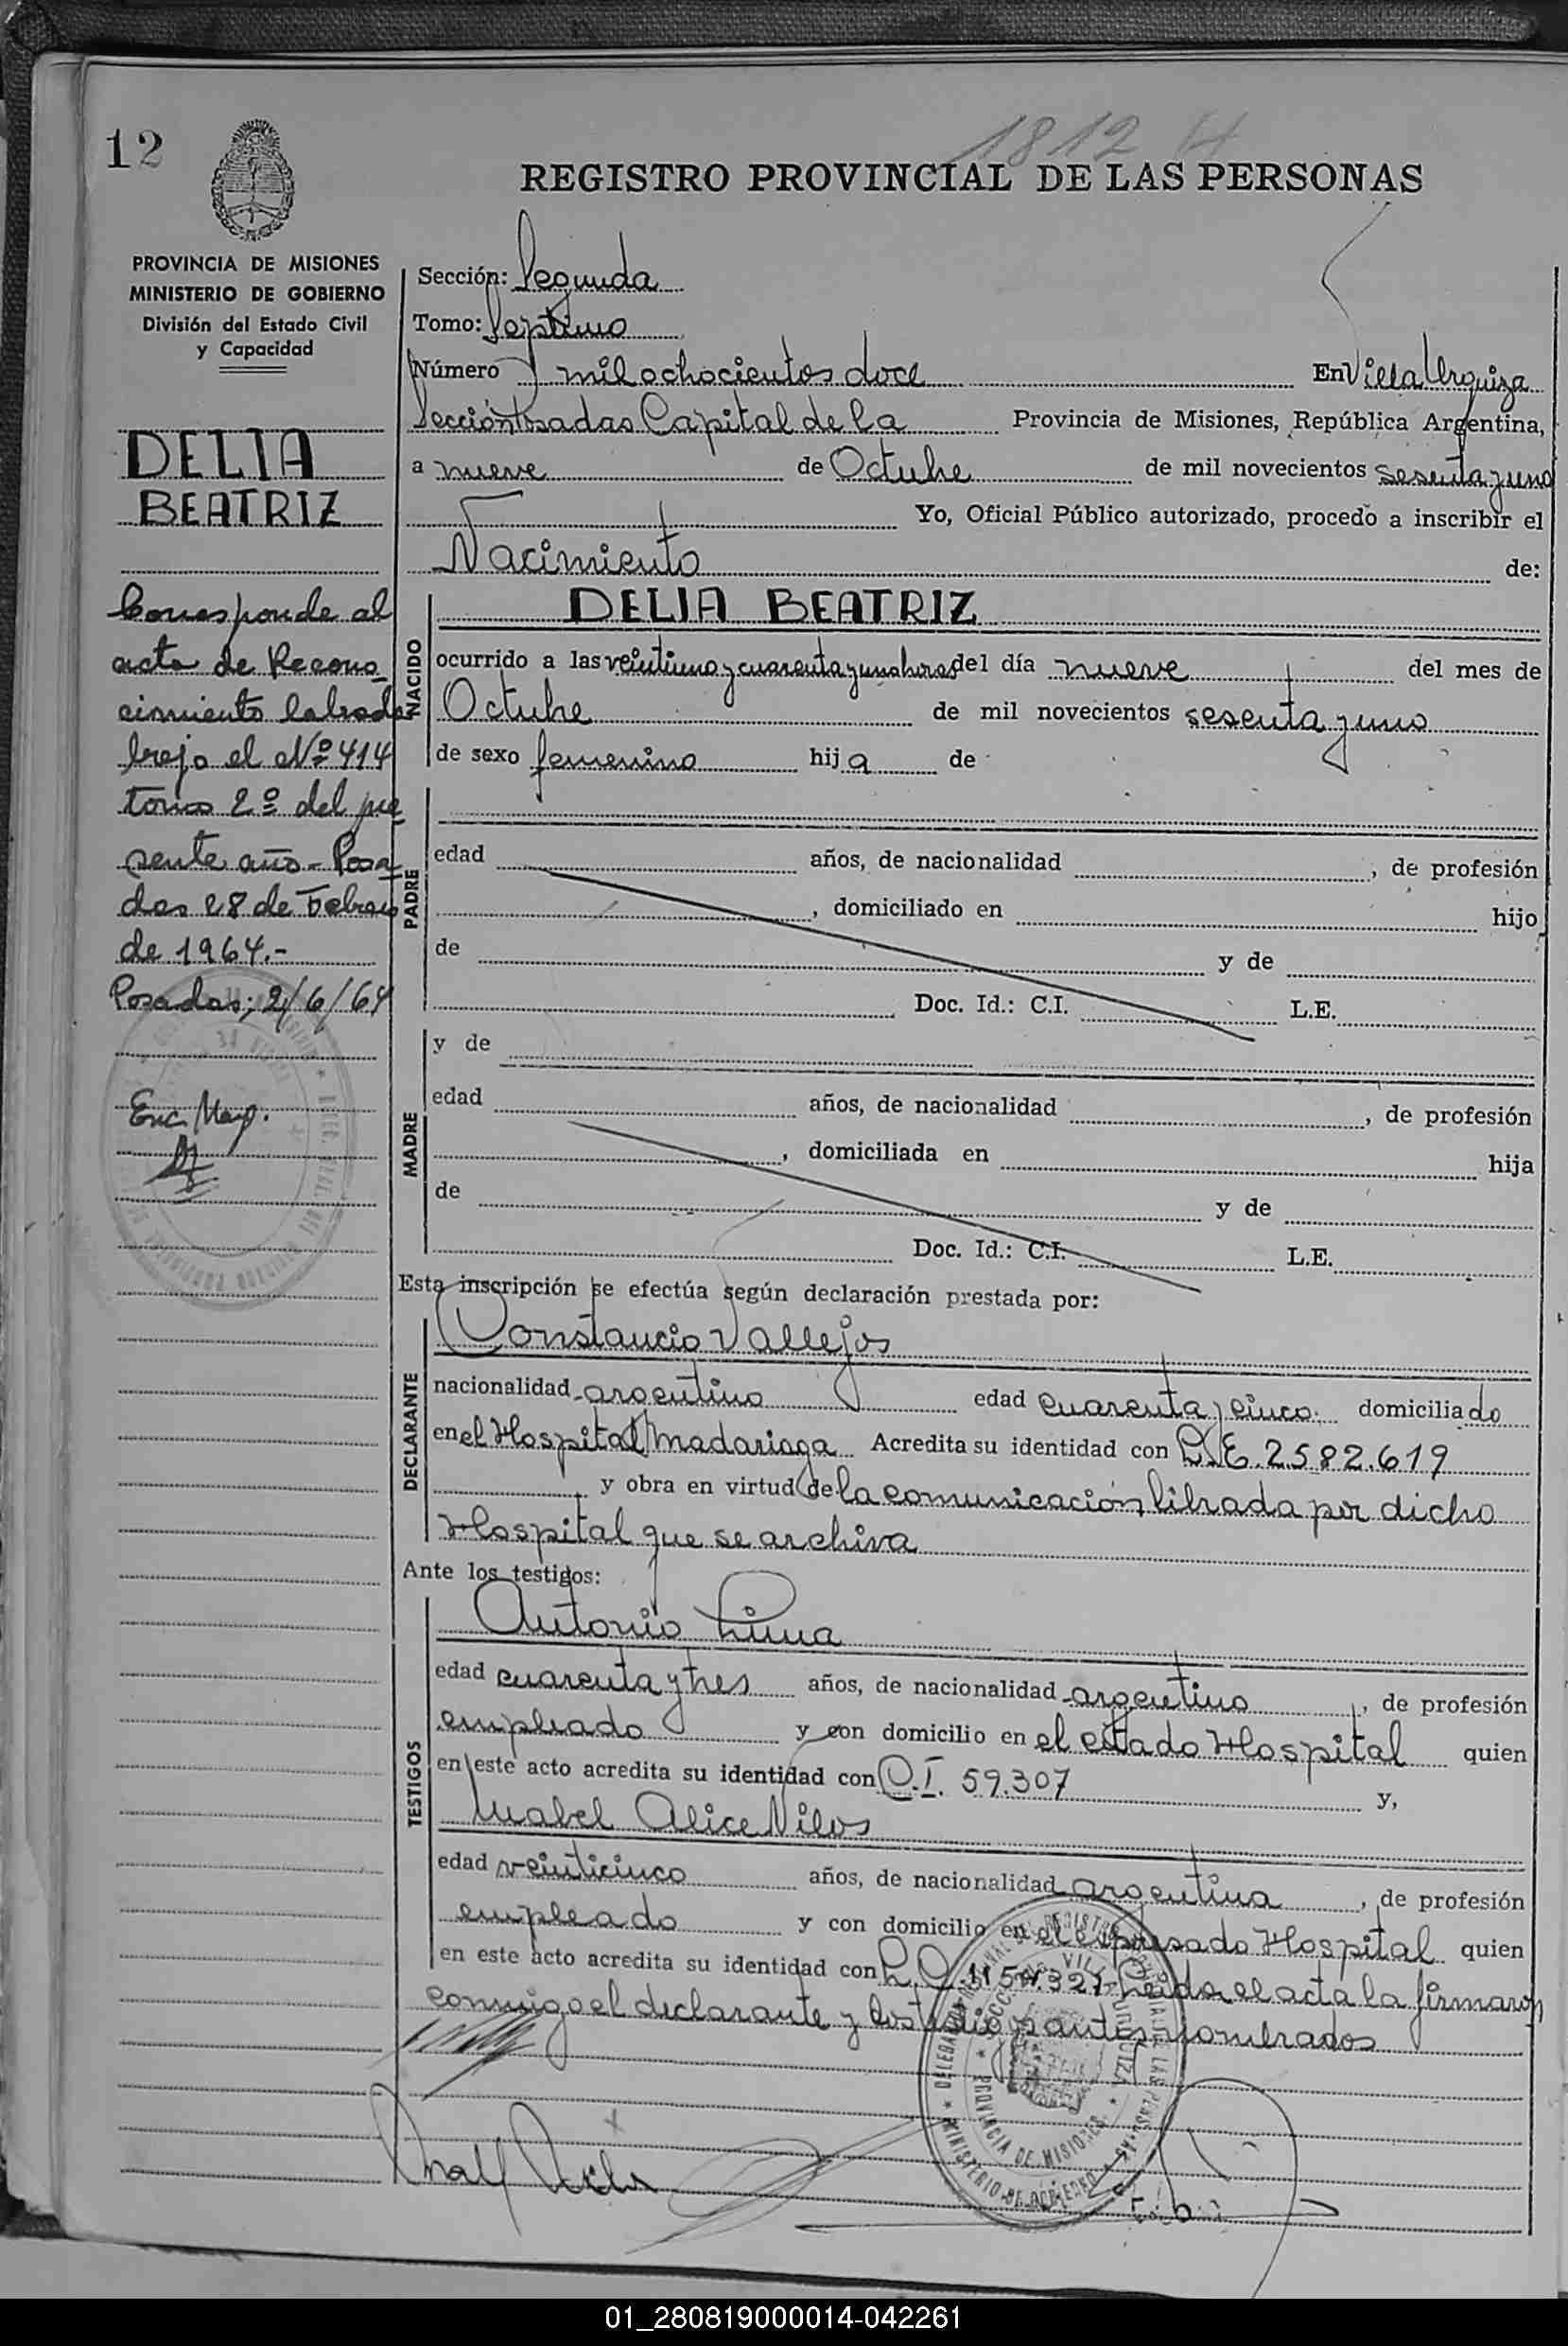 1812 H
12
REGISTRO PROVINCIAL DE LAS PERSONAS
PROVINCIA DE MISIONES
MINISTERIO DE GOBIERNO
División del Estado Civil
y Capacidad
DELIA
BEATRIZ
Corresponde al
acta de Recono_
cimiento labrado
bajo el Nº 414
tomo 2º del pre_
sente año - Posa_
das 28 de Febrero
de 1964.-
Posadas; 2/6/64
Enc. Mayo.
Sección: Segunda
Tomo: Septimo
Número mil ochocientos doce En Villa Urquiza
Sección Posadas Capital de la Provincia de Misiones, República Argentina,
a nueve de Octubre de mil novecientos sesenta y uno
Yo, Oficial Público autorizado, procedo a inscribir el
Nacimiento de:
NACIDO
DELIA BEATRIZ
ocurrido a las veintiuno y cuarenta y una horas del día nueve del mes de
Octubre de mil novecientos sesenta y uno
de sexo femenino hija de
PADRE
edad años, de nacionalidad , de profesión
, domiciliado en hijo
de y de
Doc. Id.: C.I. L.E.
MADRE
y de
edad años, de nacionalidad , de profesión
, domiciliada en hija
de y de
Doc. Id.: C.I. L.E.
Esta inscripción se efectúa según declaración prestada por:
DECLARANTE
Constancio Vallejos
nacionalidad argentino edad cuarenta y cinco domiciliado
en el Hospital Madariaga Acredita su identidad con L.E. 2582.619
y obra en virtud de la comunicación librada por dicho
Hospital que se archiva
Ante los testigos:
TESTIGOS
Antonio Lima
edad cuarenta y tres años, de nacionalidad argentino , de profesión
empleado y con domicilio en el citado Hospital quien
en este acto acredita su identidad con C.I. 59.307 y,
Mabel Alice
edad veinticinco años, de nacionalidad argentina , de profesión
empleado y con domicilio en el expresado Hospital quien
en este acto acredita su identidad con L.C. Leida el acta la firmaron
conmigo el declarante y los testigos antes nombrados
PROVINCIA DE MISIONES
MINISTERIO DE GOBIERNO
01_280819000014-042261